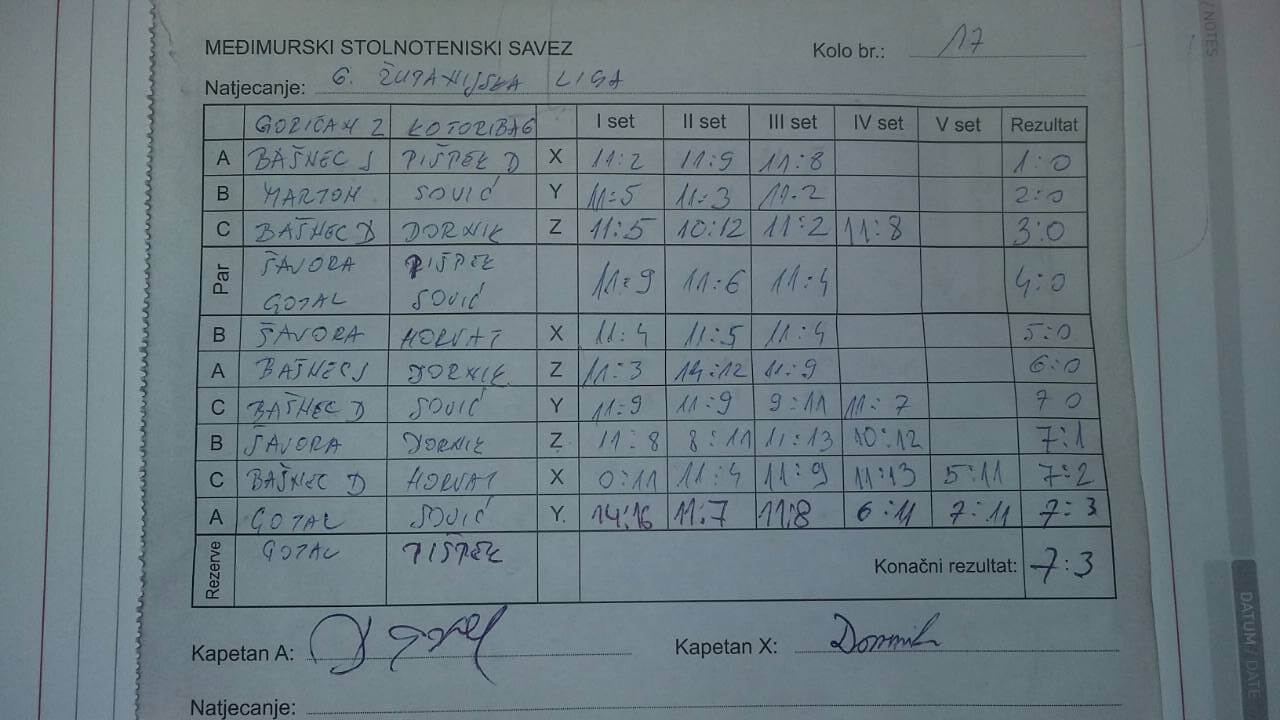 MEĐIMURSKI STOLNOTENISKI SAVEZ
Kolo br.: 17
Natjecanje: 6. ŽUPANIJSKA LIGA
GORIČAN 2 KOTORIBA 6 I set II set III set IV set V set Rezultat
A BAŠNEC J PIŠPEK D X 11:2 11:9 11:8 1:0
B MARTON SOVIĆ Y 11:5 11:3 11:2 2:0
C BAŠNEC D DORNIK Z 11:5 10:12 11:2 11:8 3:0
Par ŠAVORA PIŠPEK 11:9 11:6 11:4 4:0
GOTAL SOVIĆ
B ŠAVORA HORVAT X 11:4 11:5 11:4 5:0
A BAŠNEC J DORNIK Z 11:3 14:12 11:9 6:0
C BAŠNEC D SOVIĆ Y 11:9 11:9 9:11 11:7 7 0
B ŠAVORA DORNIK Z 11:8 8:11 11:13 10:12 7:1
C BAŠNEC D HORVAT X 0:11 11:4 11:9 11:13 5:11 7:2
A GOTAL SOVIĆ Y. 14:16 11:7 11:8 6:11 7:11 7:3
Rezerve GOTAL PIŠPEK Konačni rezultat: 7:3
Kapetan A: Kapetan X: Dornik
Natjecanje:
/ NOTES
DATUM / DATE